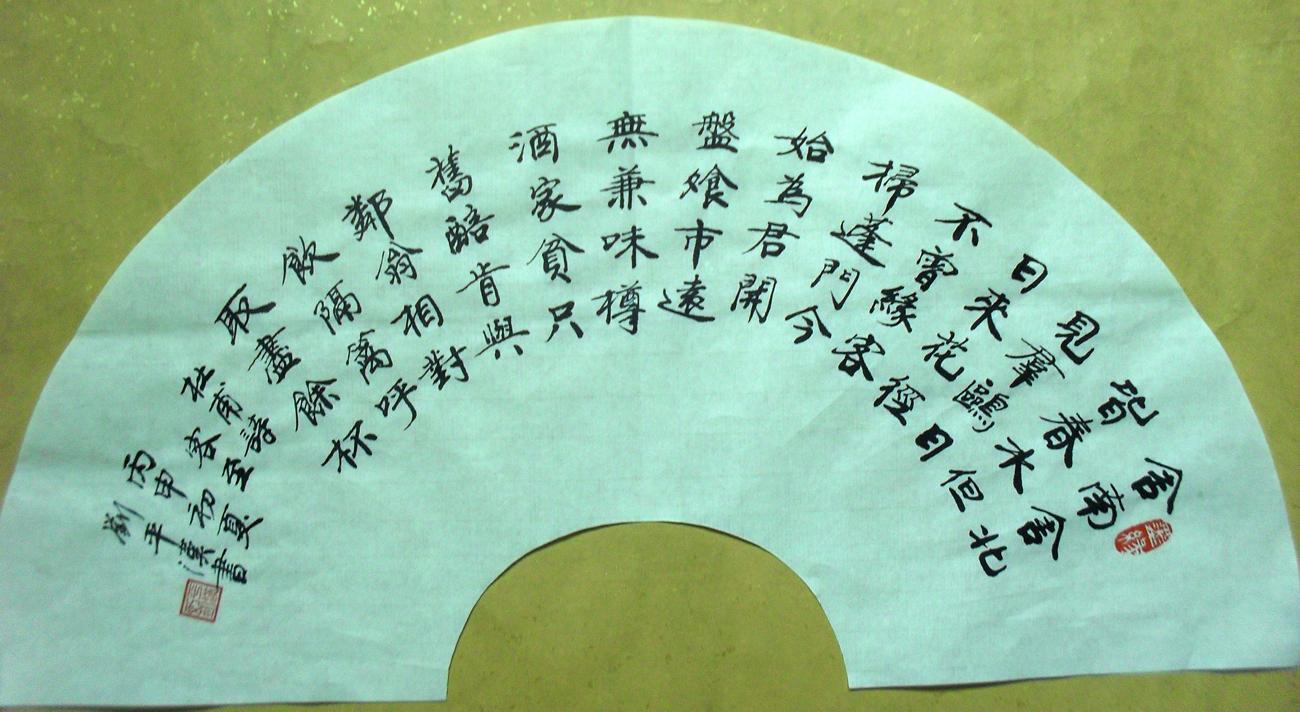 舍南舍北
皆春水但
見羣鷗日
日來花徑
不曾緣客
掃蓬門今
始為君開
盤飧市遠
無兼味樽
酒家貧只
舊醅肯與
鄰翁相對
飲隔篱呼
取盡餘杯
杜甫詩
客至
丙申初夏
劉平書